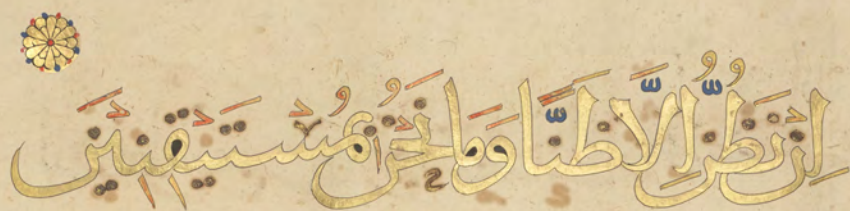 إِنْ نَظُنُّ إِلَّا ظَنًّا وَمَا نَحْنُ بِمُسْتَيْقِنِينَ